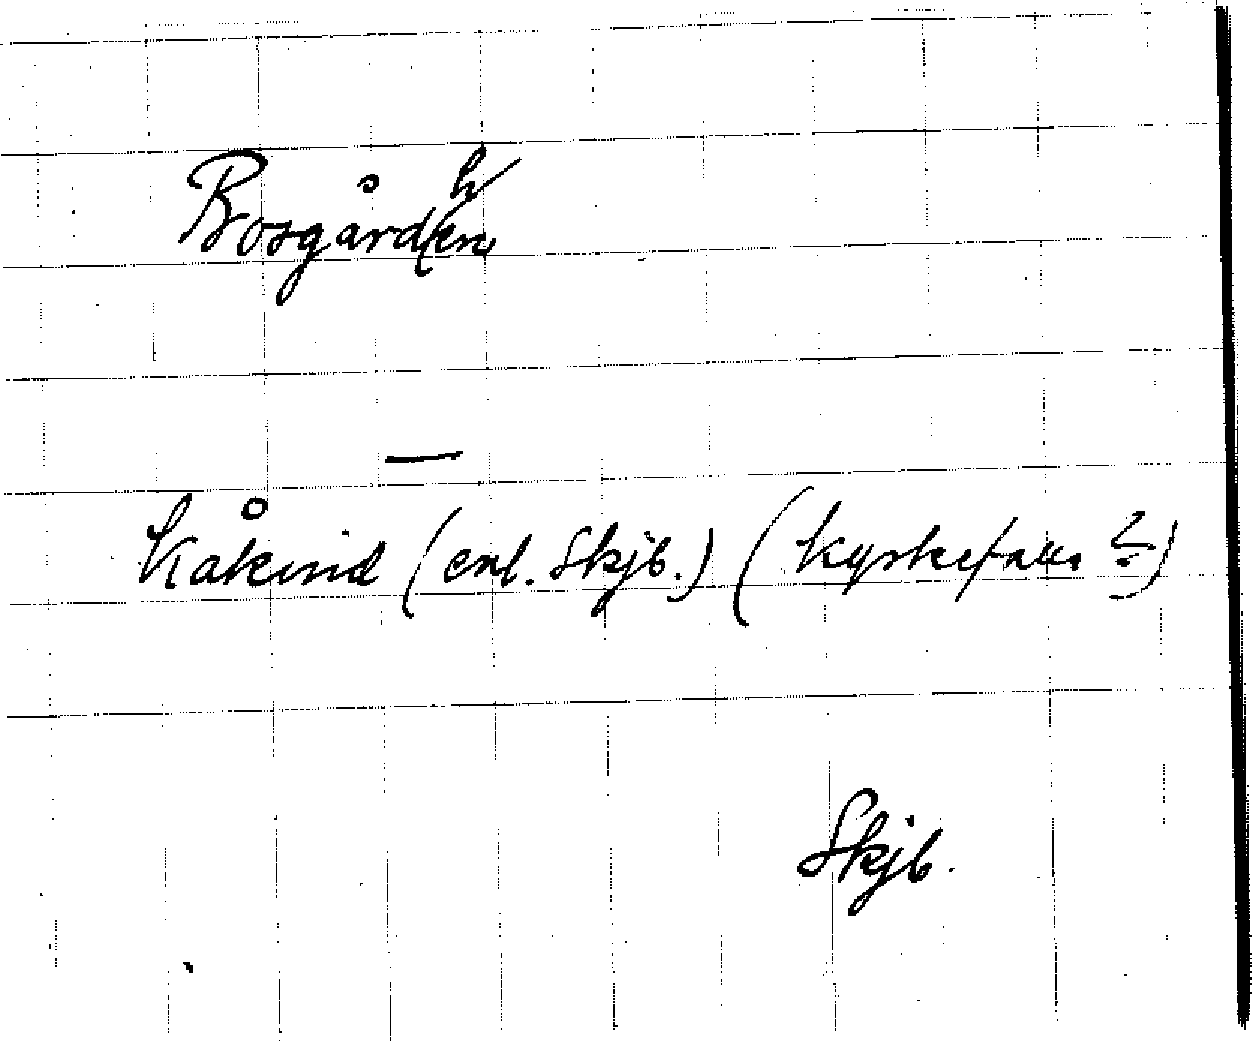 h
Bosgård(en
—
Kåkind (enl. Skjb.) (Kyrkefalla ?)
Skjb.